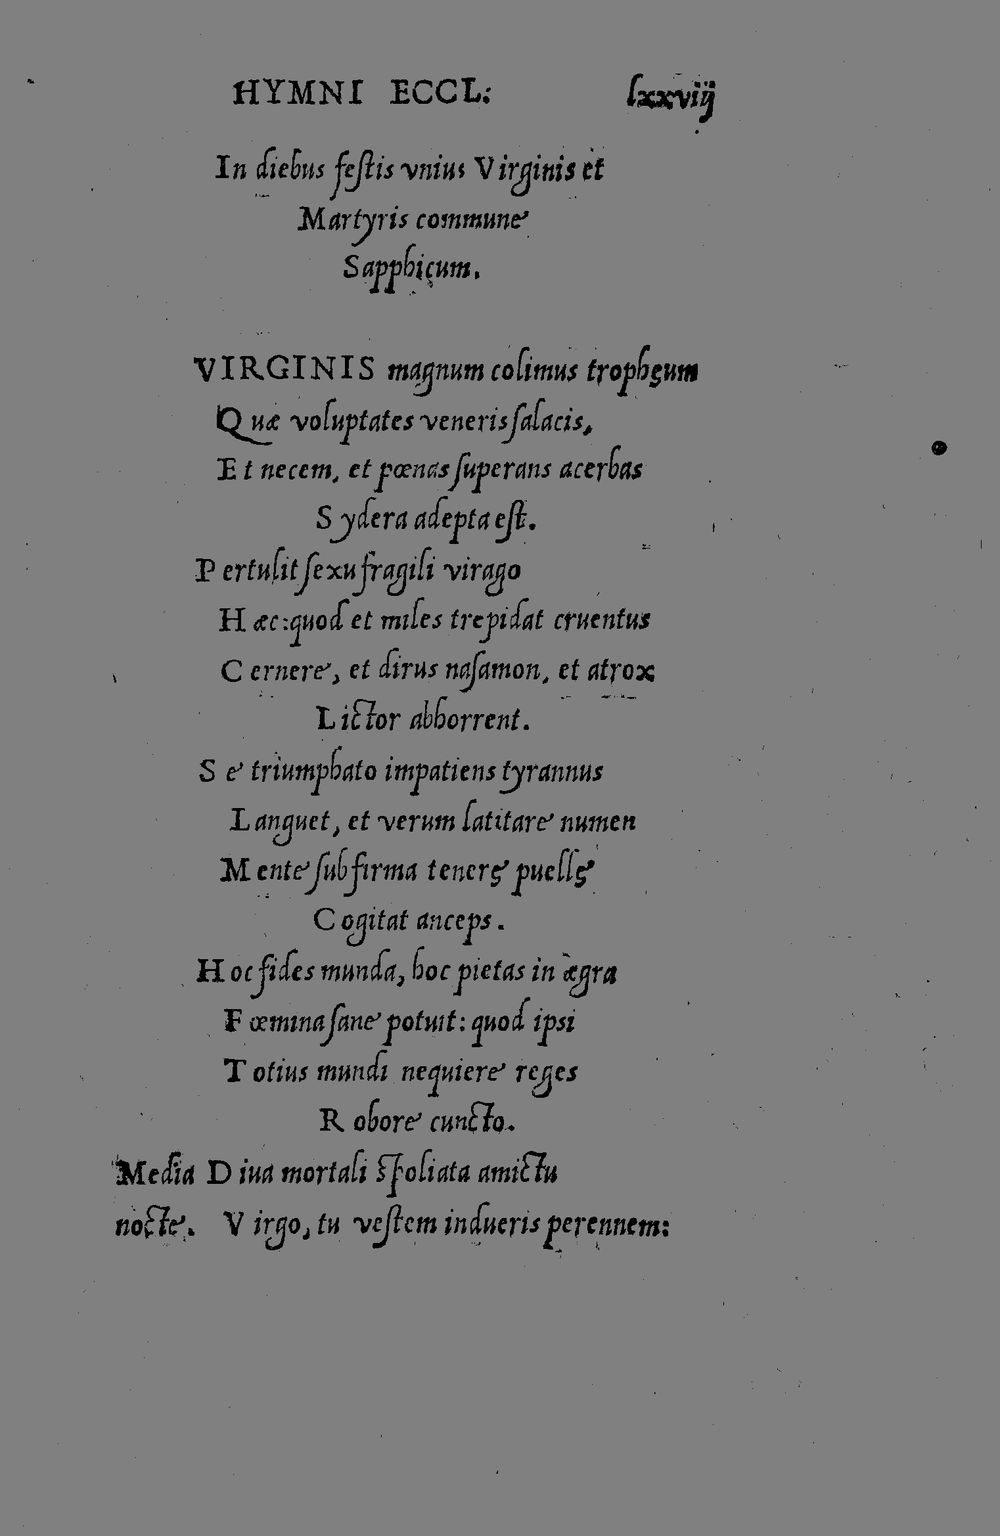 HYMNI ECCL: lxxviij
In diebus festis vnius Virginis et
Martyris commune
Sapphicum.
VIRGINIS magnum colimus trophęum
Quæ voluptates veneris salacis,
Et necem, et pœnas superans acerbas
Sydera adepta est.
Pertulit sexu fragili virago
Hæc: quod et miles trepidat cruentus
Cernere, et dirus nasamon, et atrox
Lictor abhorrent.
Se triumphato impatiens tyrannus
Languet, et verum latitare numen
Mente sub firma tenerę puellę
Cogitat anceps.
Hoc fides munda, hoc pietas in ægra
Fœmina sane potuit: quod ipsi
Totius mundi nequiere reges
Robore cuncto.
Media Diua mortali spoliata amictu
nocte. Virgo, tu vestem indueris perennem: